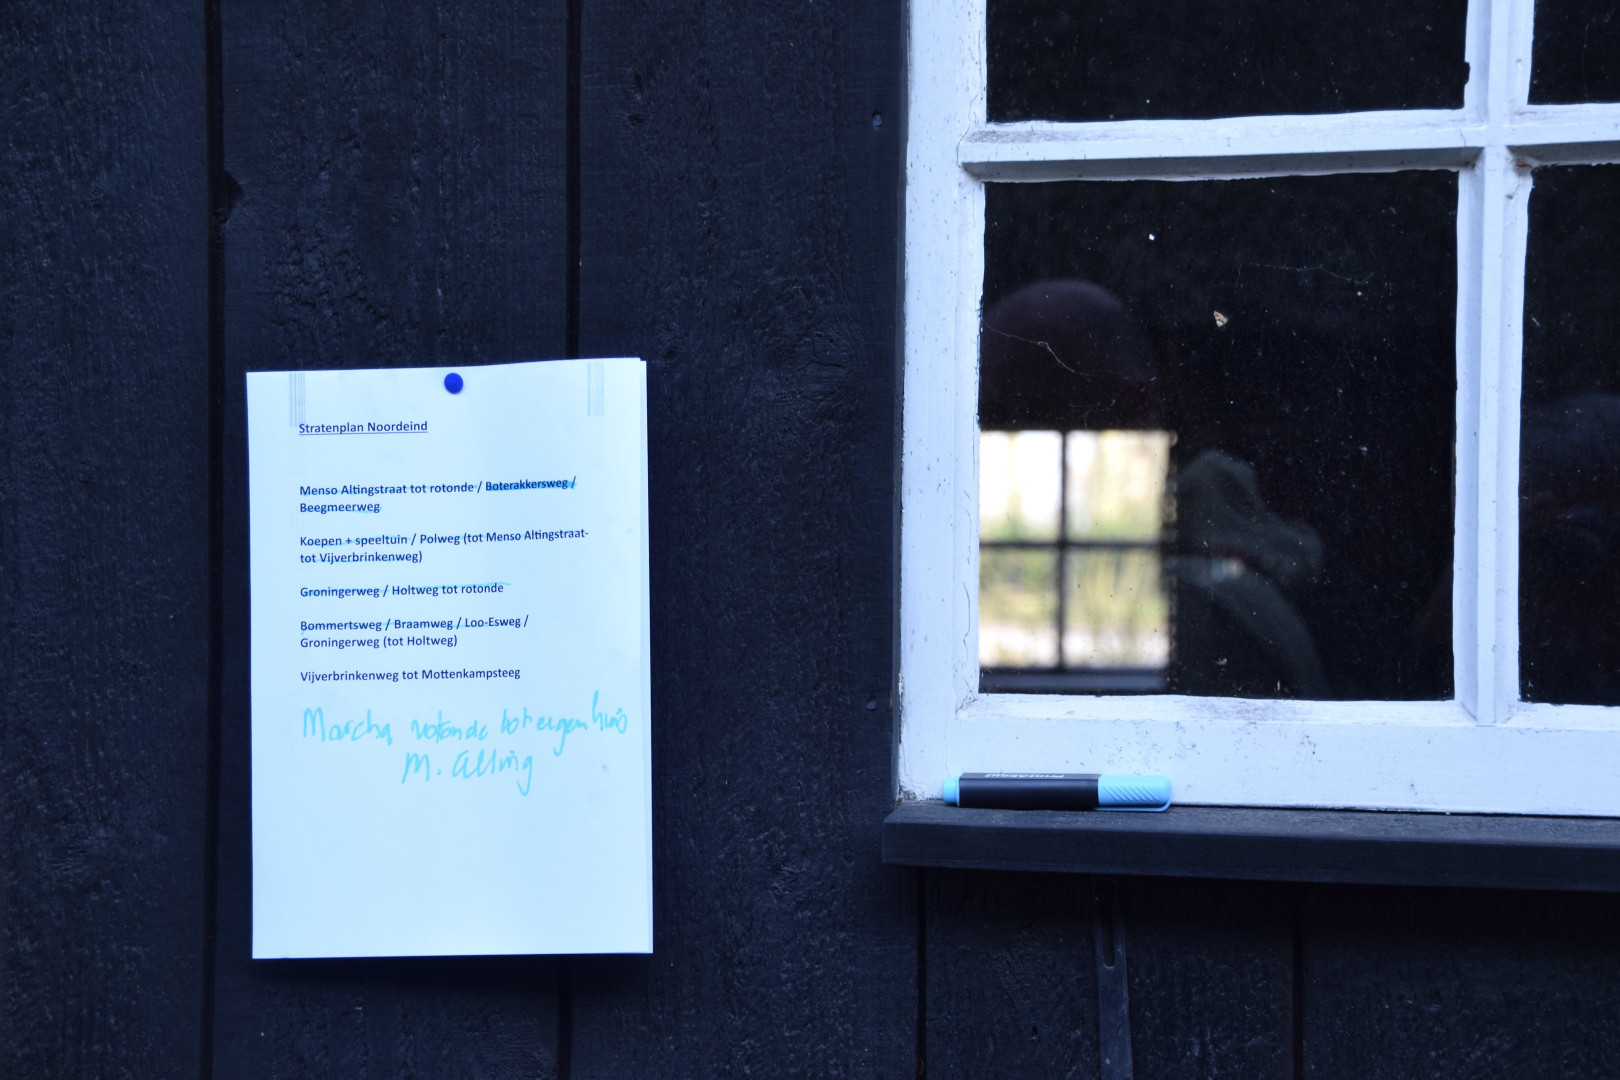 Stratenplan Noordeind
Menso Altingstraat tot rotonde / Boterakkersweg /
Beegmeerweg
Koepen + speeltuin / Polweg (tot Menso Altingstraat-
tot Vijverbrinkenweg)
Groningerweg / Holtweg tot rotonde
Bommertsweg / Braamweg / Loo-Esweg /
Groningerweg (tot Holtweg)
Vijverbrinkenweg tot Mottenkampsteeg
Marcha rotonde tot eigen huis
M. Alting